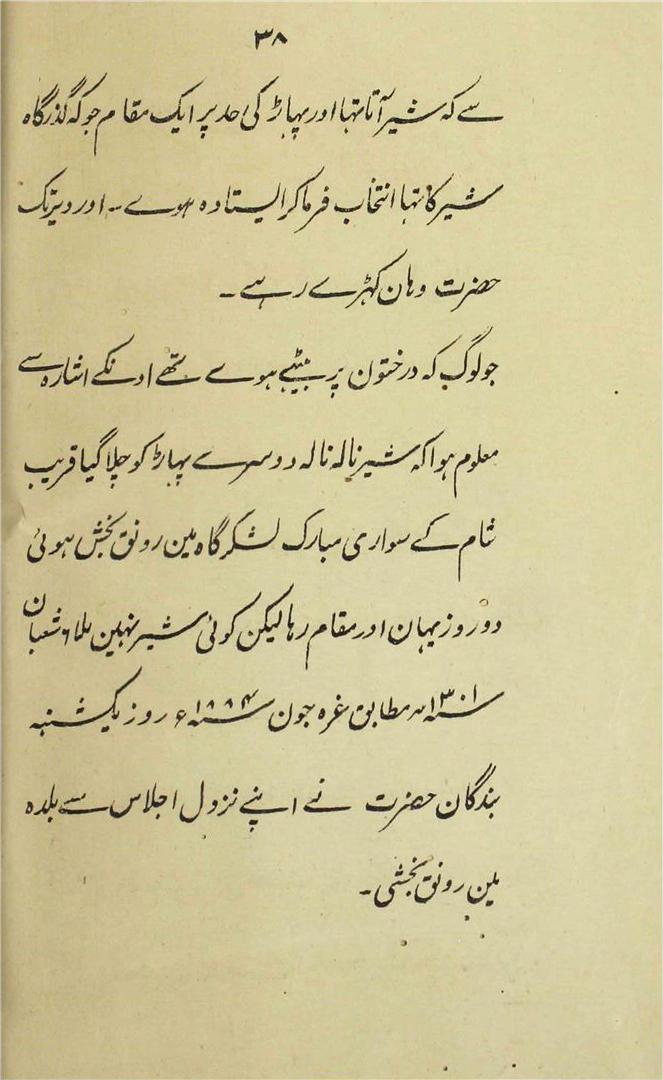 ۳۸
سے کہ شیر آتا تہا اور پہاڑ کی حد پر ایک مقام جو کہ گذرگاہ
شیر کا تہا انتخاب فرما کر ایستادہ ہوے ۔ اور دیر تک
حضرت وہان کہڑے رہے ۔
جو لوگ کہ درختون پر بیٹھے ہوے تھے اونکے اشارہ سے
معلوم ہوا کہ شیر نالہ نالہ دوسرے پہاڑ کو چلا گیا قریب
شام کے سواری مبارک لشکر گاہ مین رونق بخش ہوئی
دو روز یہان اور مقام رہا لیکن کوئی شیر نہین ملا ۶ شعبان
سنہ ۱۳۰۱ھ مطابق غرہ جون سنہ ۱۸۸۴ء روز یکشنبہ
بندگان حضرت نے اپنے نزول اجلاس سے بلدہ
مین رونق بخشی ۔